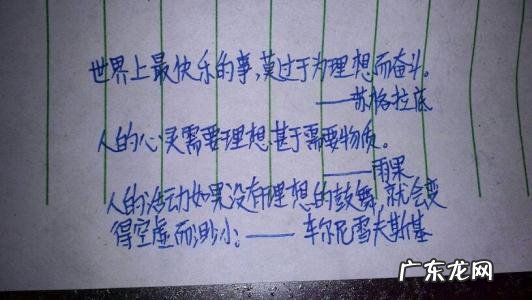 世界上最快乐的事,莫过于为理想而奋斗。
——苏格拉底
人的心灵需要理想甚于需要物质。
——雨果
人的活动如果没有理想的鼓舞,就会变
得空虚而渺小。—— 车尔尼雪夫斯基
广东龙网